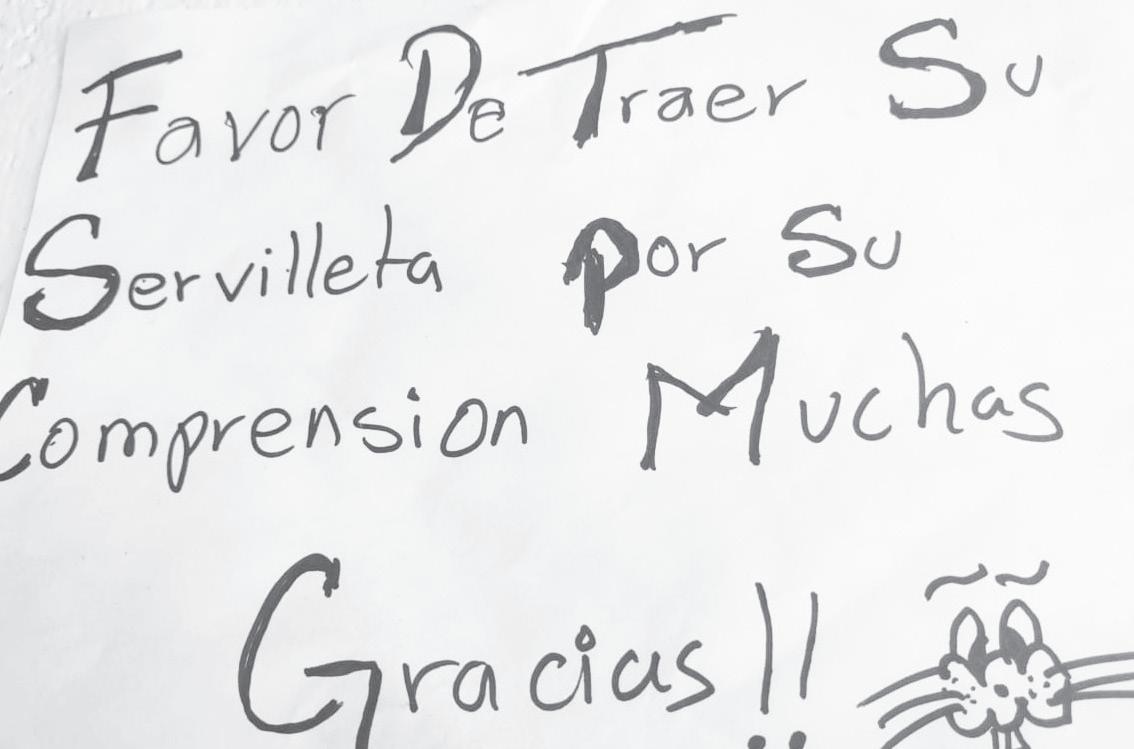 Favor De Traer Su
Servilleta por Su
Comprension Muchas
Gracias!!